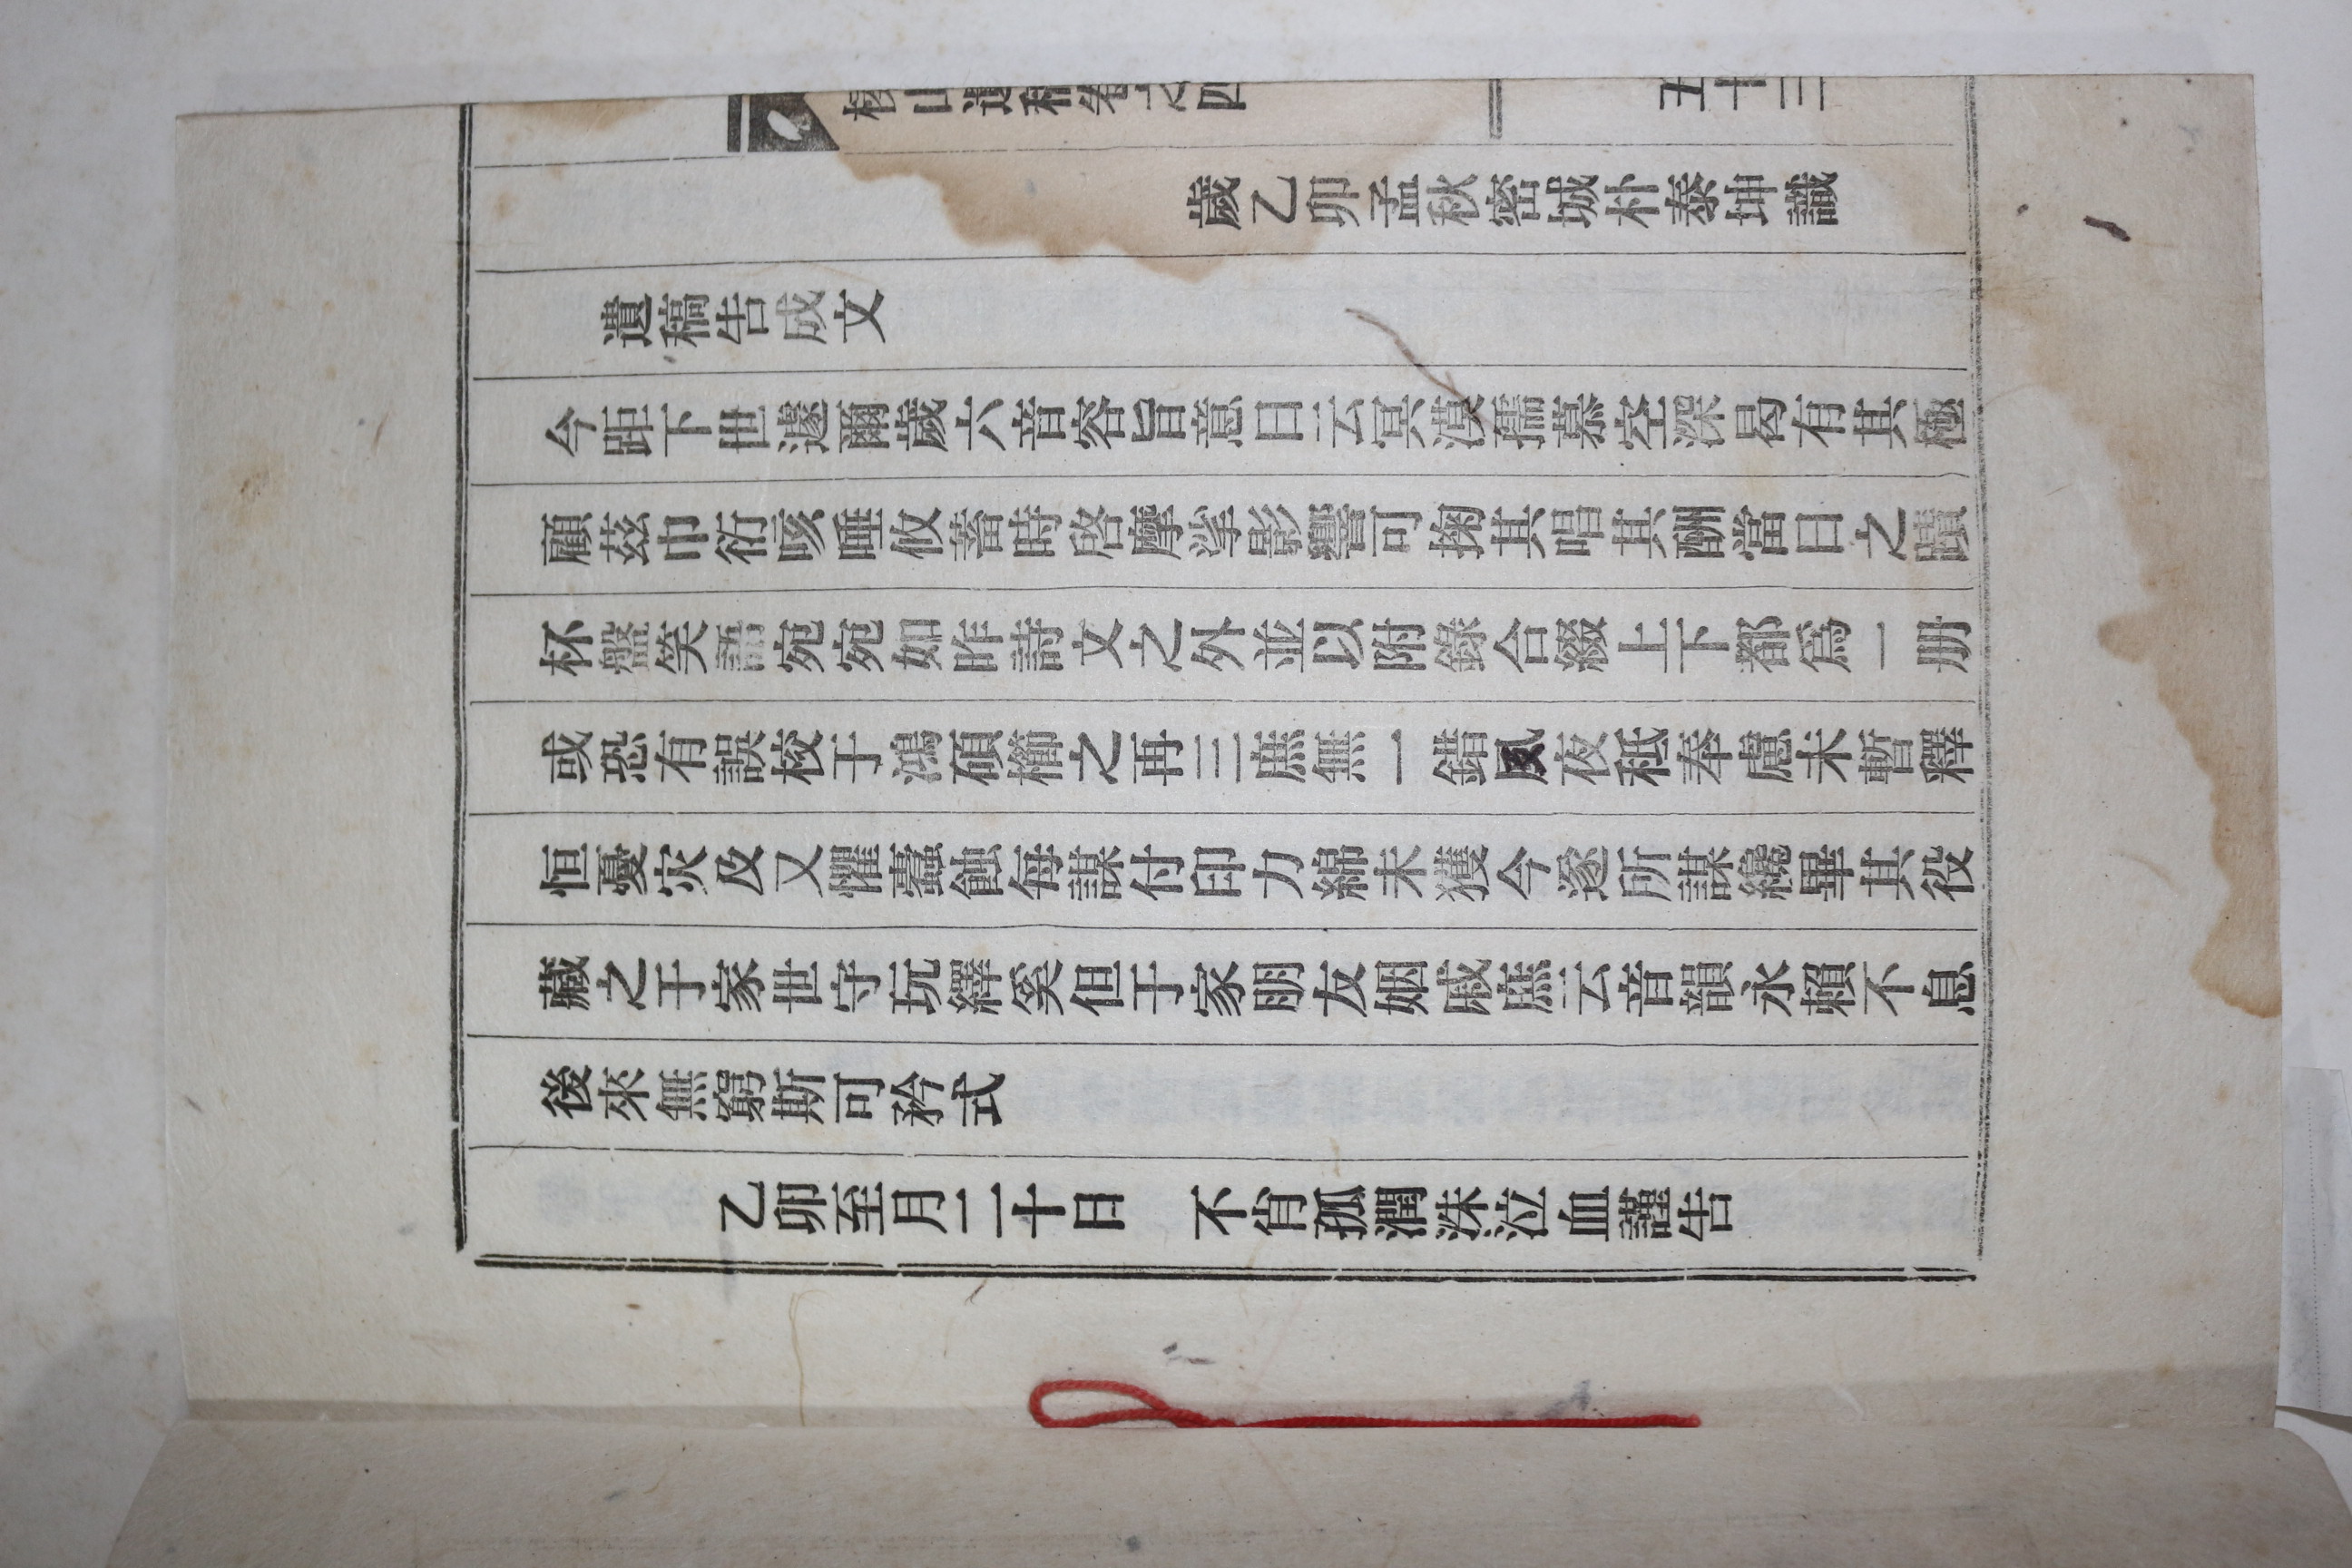 山遺稿卷之四
五十三
歲乙卯孟秋密城朴泰坤識
遺稿告成文
今距下世遽爾歲六音容旨意日云冥漠孺慕空深曷有其極
顧茲巾衍咳唾攸蓄時啓摩挲影響可掬其唱其酬當日之蹟
杯盤笑語宛宛如昨詩文之外並以附錄合綴上下都爲一册
或恐有誤校于鴻碩櫛之再三庶無一錯夙夜秪奉慮未暫釋
恒憂灾及又懼蠹蝕每謀付印力綿未獲今遂所謀纔畢其役
藏之于家世守玩繹奚但于家朋友姻戚庶云音韻永賴不息
後來無窮斯可矜式
乙卯至月二十日　不肖孤潤洙泣血謹告